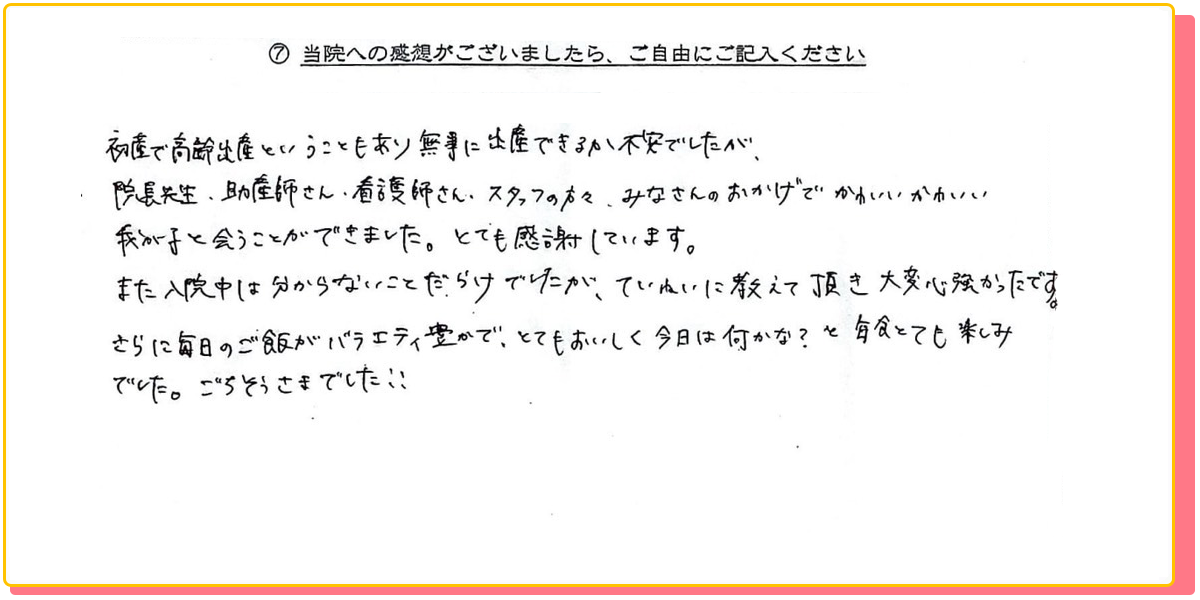 ⑦ 当院への感想がございましたら、ご自由にご記入ください
初産で高齢出産ということもあり無事に出産できるか不安でしたが、
院長先生、助産師さん・看護師さん・スタッフの方々、みなさんのおかげでかわいいかわいい
我が子と会うことができました。とても感謝しています。
また入院中は分からないことだらけでしたが、ていねいに教えて頂き大変心強かったです。
さらに毎日のご飯がバラエティ豊かで、とてもおいしく今日は何かな？と毎食とても楽しみ
でした。ごちそうさまでした!!